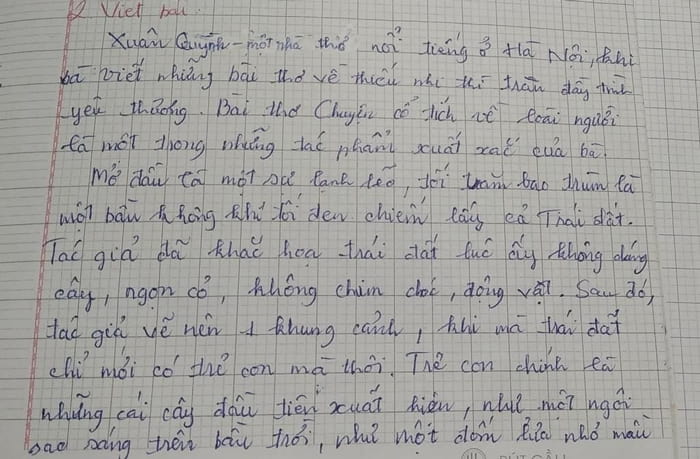 2 Viết bài.
Xuân Quỳnh - một nhà thơ nổi tiếng ở Hà Nội, khi
bà viết những bài thơ về thiếu nhi thì tràn đầy tình
yêu thương. Bài thơ Chuyện cổ tích về loài người
là một trong những tác phẩm xuất xắc của bà.
Mở đầu là một sự lạnh lẽo, tối tăm bao trùm là
một bầu không khí tối đen chiếm lấy cả Trái đất.
Tác giả đã khắc hoạ trái đất lúc ấy không dáng
cây, ngọn cỏ, không chim chóc, động vật. Sau đó,
tác giả vẽ nên 1 khung cảnh, khi mà trái đất
chỉ mới có trẻ con mà thôi. Trẻ con chính là
những cái cây đầu tiên xuất hiện, như một ngôi
sao sáng trên bầu trời, như một đốm lửa nhỏ màu